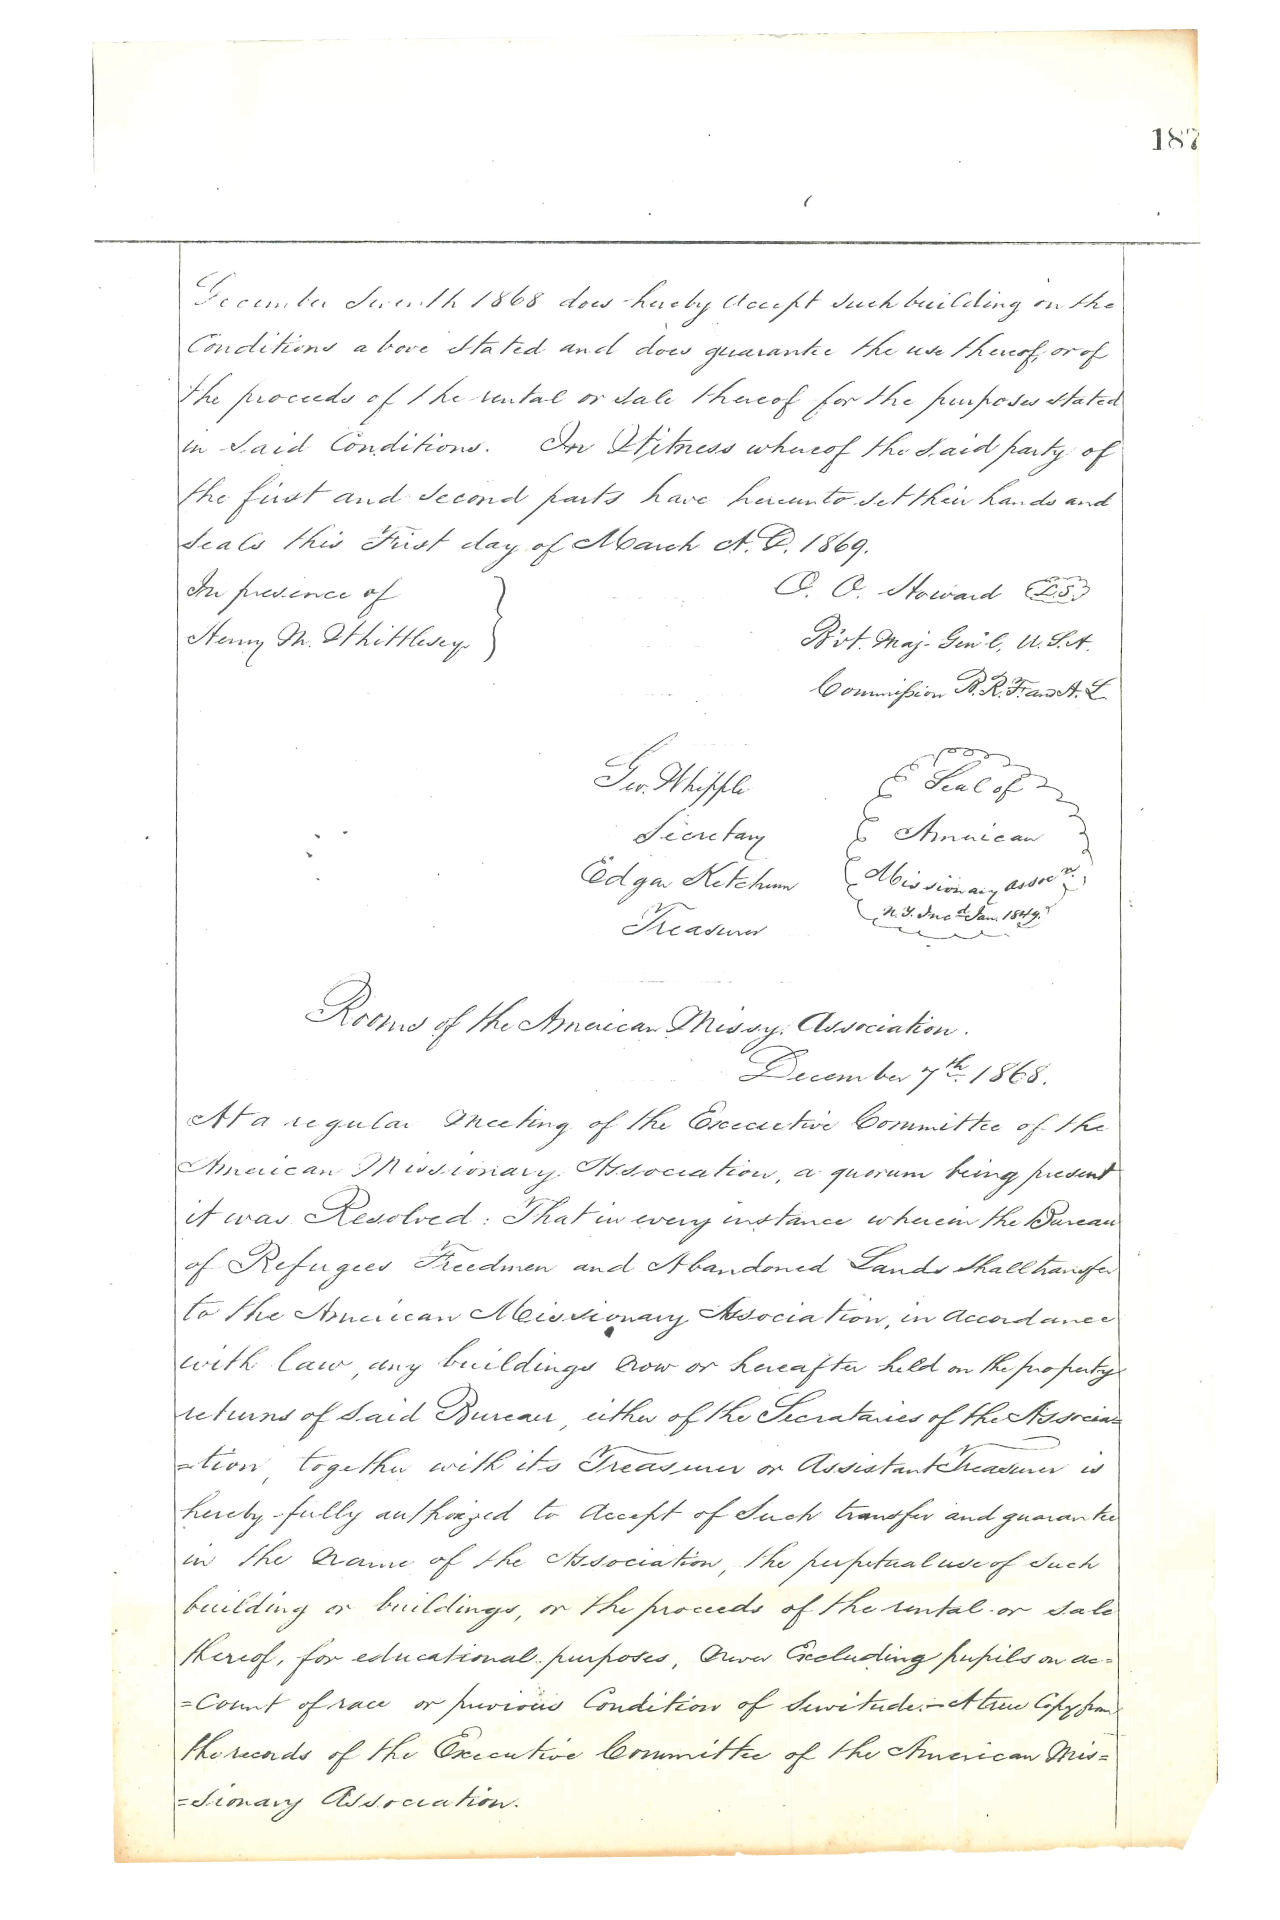 187
December Seventh 1868 does hereby accept such building on the
Conditions above stated and does guarantee the use thereof, or of
the proceeds of the rental or sale thereof for the purposes stated
in said Conditions. In Witness whereof the said party of
the first and second parts have hereunto set their hands and
seals this First day of March A.D. 1869.
In presence of
Henry M. Whittlesey
O. O. Howard L.S.
Bvt. Maj. Gen'l. U.S.A.
Commission B.R.F. and A. L
Geo. Whipple
Secretary
Edgar Ketchum
Treasurer
Seal of
American
Missionary Assocn.
N.Y. Incd Jan. 1849.
Rooms of the American Missy. Association.
December 7th. 1868.
At a regular meeting of the Executive Committee of the
American Missionary Association, a quorum being present
it was Resolved: That in every instance wherein the Bureau
of Refugees Freedmen and Abandoned Lands shall transfer
to the American Missionary Association, in accordance
with law, any buildings now or hereafter held on the property
returns of said Bureau, either of the Secrataries of the Associa=
=tion, together with its Treasurer or Assistant Treasurer is
hereby fully authorized to accept of such transfer and guarantee
in the name of the Association, the perpetual use of such
building or buildings, or the proceeds of the rental or sale
thereof, for educational purposes, never Excluding pupils on ac=
=count of race or previous Condition of servitude.- A true Copy from
the records of the Executive Committee of the American Mis=
=sionary Association.